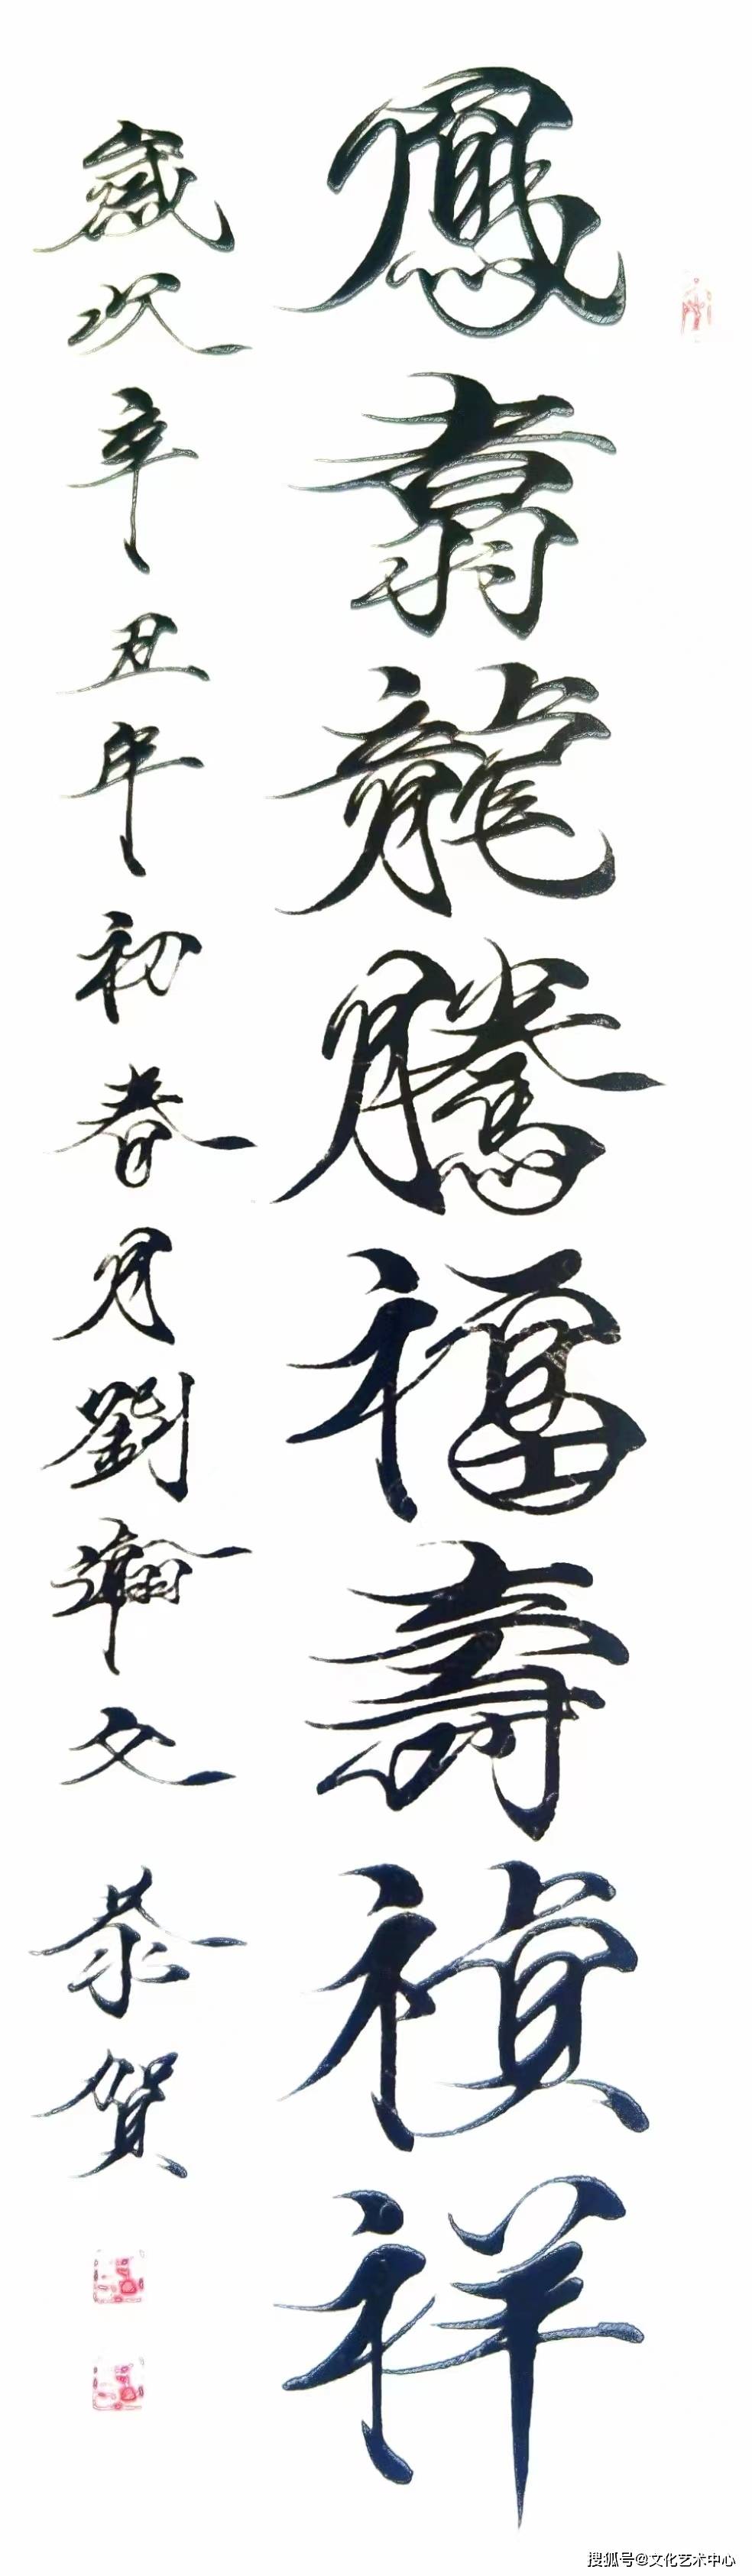 鳳翥龍騰福壽禎祥
歲次辛丑年初春月劉瀚文恭賀
搜狐号@文化艺术中心